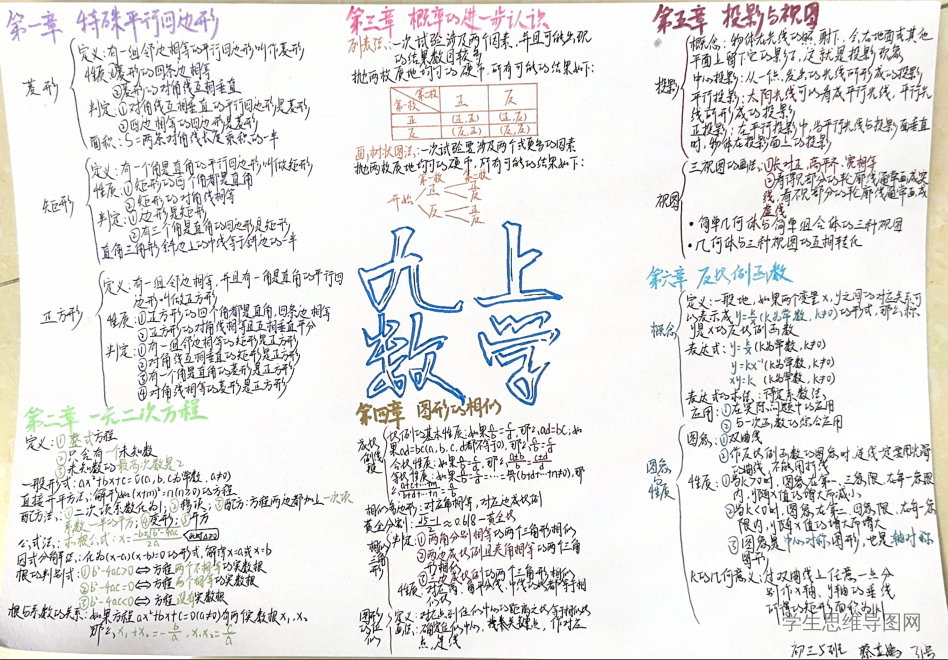 第一章 特殊平行四边形
菱形
定义:有一组邻边相等的平行四边形叫作菱形
性质:①菱形的四条边相等
②菱形的对角线互相垂直
判定:①对角线互相垂直的平行四边形是菱形
②四边相等的四边形是菱形
面积:S=两条对角线长度乘积的一半
矩形
定义:有一个角是直角的平行四边形叫做矩形
性质:①矩形的四个角都是直角
②矩形的对角线相等
判定:①
边形是矩形
②有三个角是直角的四边形是矩形
直角三角形斜边上的中线等于斜边的一半
正方形
定义:有一组邻边相等,并且有一角是直角的平行四
边形叫做正方形
性质:①正方形的四个角都是直角,四条边相等
②正方形的对角线相等且互相垂直平分
判定:①有一组邻边相等的矩形是正方形
②对角线互相垂直的矩形是正方形
③有一个角是直角的菱形是正方形
④对角线相等的菱形是正方形
第二章 一元二次方程
定义:①整式方程
②只含有一个未知数
③未知数的最高次数是2
一般形式:ax²+bx+c=0(a,b,c为常数,a≠0)
直接开平方法:解形如(x+m)²=n(n≥0)的方程
配方法:①二次项系数化为1;②移项;③配方:方程两边都加上一次项
系数一半的平方;④变形;⑤开方
公式法:求根公式:x=
因式分解法:化为(x-a)(x-b)=0的形式,解得x=a或x=b
根的判别式:①b²-4ac>0⇔方程两个不相等的实数根
②b²-4ac=0⇔方程两个相等的实数根
③b²-4ac<0⇔方程没有实数根
根与系数的关系:如果方程ax²+bx+c=0(a≠0)有两个实数根x₁,x₂
那么x₁+x₂=-b/a,x₁x₂=c/a
第三章 概率的进一步认识
列表法:一次试验涉及两个因素,并且可能出现
的结果数目较多
抛两枚质地均匀的硬币,所有可能的结果如下:
第二枚
第一枚
正 反
正 (正,正) (正,反)
反 (反,正) (反,反)
画树状图法:一次试验里涉及两个或更多的因素
抛两枚质地均匀的硬币,所有可能的结果如下:
第一枚 第二枚
开始
正 正
反
反 正
反
九上
数学
第四章 图形的相似
成比例线段
比例的基本性质:如果a/b=c/d,那么ad=bc;如
果ad=bc(a,b,c,d都不等于0),那么a/b=c/d
合比性质:如果a/b=c/d,那么
等比性质:如果
相似多边形:对应角相等,对应边成比例
黄金分割:(√5-1)/2≈0.618—黄金比
相似三角形
判定:①两角分别相等的两个三角形相似
②两边成比例且夹角相等的两个三角
形相似
③三边成比例的两个三角形相似
图形的位似
第五章 投影与视图
投影
概念:物体在光线的照射下,会在地面或其他
平面上留下它的影子,这就是投影现象
中心投影:从一点发出的光线所形成的投影
平行投影:太阳光线可以看成平行光线,平行光
线所形成的投影
正投影:在平行投影中,当平行光线与投影面垂直
时,物体在投影面上的投影
视图
三视图的画法:①长对正,高平齐,宽相等
②看得见部分的轮廓线通常画成实
线,看不见部分的轮廓线通常画成
虚线
•简单几何体与简单组合体的三种视图
•几何体与三种视图的互相转化
第六章 反比例函数
概念
定义:一般地,如果两个变量x,y之间的对应关系可
以表示成y=k/x(k为常数,k≠0)的形式,那么称
y是x的反比例函数
表达式:y=k/x(k为常数,k≠0)
y=kx⁻¹(k为常数,k≠0)
xy=k(k为常数,k≠0)
表达式的求法:待定系数法
应用:①在实际问题中的应用
②与一次函数的综合应用
图象与性质
图象:①双曲线
②作反比例函数的图象时,连线一定要用光滑
的曲线,不能用折线
性质:①当k>0时,图象在第一、三象限,在每一象限
内,y随x值的增大而减小
②当k<0时,图象在第二、四象限,在每一象
限内,y随x值的增大而增大
③图象是中心对称图形,也是轴对称
图形
K的几何意义:过双曲线上任意一点分
别作x轴,y轴的垂线
所得的矩形面积为|k|
学生思维导图网
初三5班